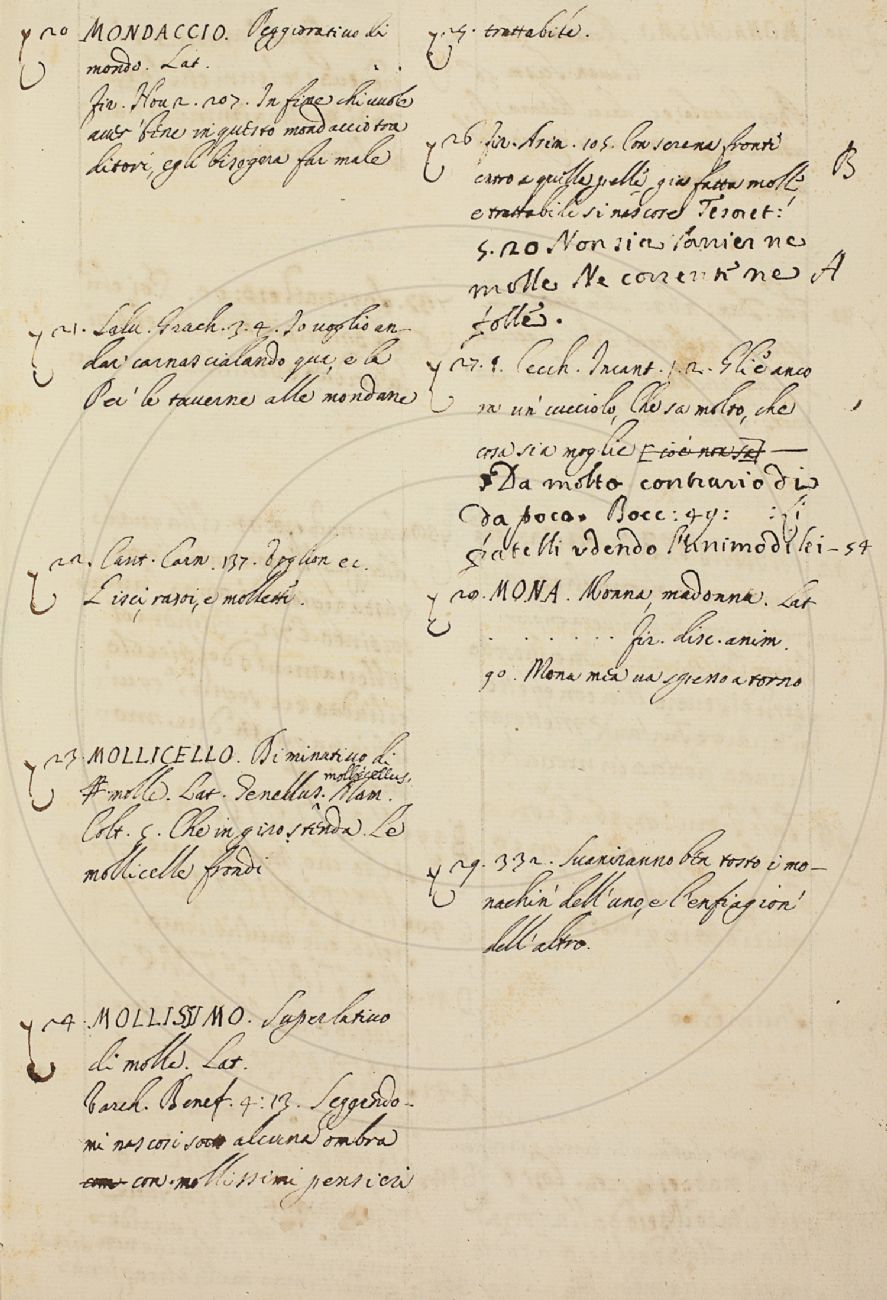 20 MONDACCIO. Peggiorativo di
mondo. Lat.
fir. Nov 2. 207. In fine chi vuole
aver bene in questo mondaccio tra
ditori, egli bisogna far male
21. Salv. Granch. 3. 4. Io voglio an-
dar carnascialando qua, e là
Per le taverne alle mondane
22. Cant. Carn. 137. Voglion ec.
Lisci, rasoi, e mollette.
23 MOLLICELLO. Diminutivo di
molle. Lat. Tenellus. mollicellus. Alam.
Colt. 5. Che in giro stenda. Le
mollicelle frondi
24. MOLLISSIMO. Superlativo
di molle. Lat.
Varch. Benef. 4: 13. Leggendo-
mi nascosi sotto alcuna ombra
con mollissimi pensieri
25. trattabile.
26. fir. Asin. 105. Con serena fronte
entro a quella pelle, già fatta molle, B
e trattabile si nascose Tesoret:
5. 20 Non sia Panier ne
molle Ne corrente ne A
folle.
27. 1. Cecch. Incant. 1. 2. Gli è anco
ra un cucciolo, Che sa molto, che
cosa sia moglie [cioè non sa] —
Da molto contrario di
da poco. Bocc: 49: : : i
fratelli udendo l'animo di lei - 54
28. MONA. Monna, madonna. Lat
. . . . . . fir. disc. anim.
90. Mona mea va spesso a torno
29. 332. Svaniranno ben tosto i mo-
nachin' dell'uno, e l'enfiagion'
dell'altro.